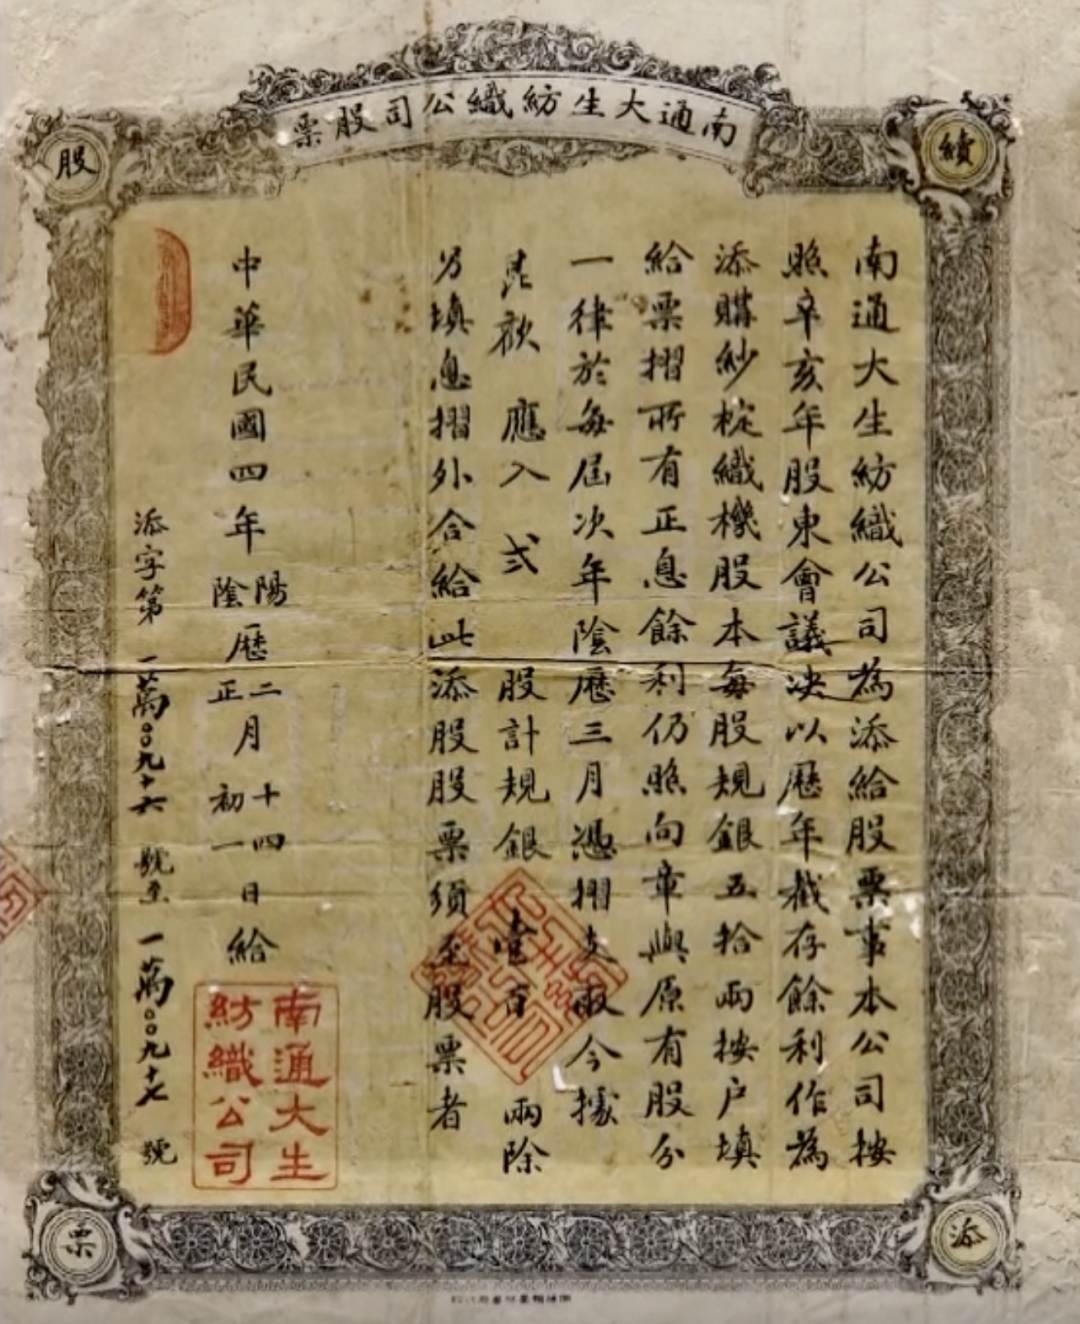 南通大生紡織公司股票
續
添
股
票
南通大生紡織公司為添給股票事本公司按
照辛亥年股東會議決以歷年截存餘利作為
添購紗椗織機股本每股規銀五拾兩按户填
給票摺所有正息餘利仍照向章與原有股分
一律於每屆次年陰歷三月憑摺支取今據
應入 弍 股計規銀 壹百 兩除
另填息摺外合給此添股股票須至股票者
中華民國四年陽歷二月十四日給
陰 正 初一
添字第 一萬〇〇九十六 號至 一萬〇〇九十七 號
南通大生
紡織公司